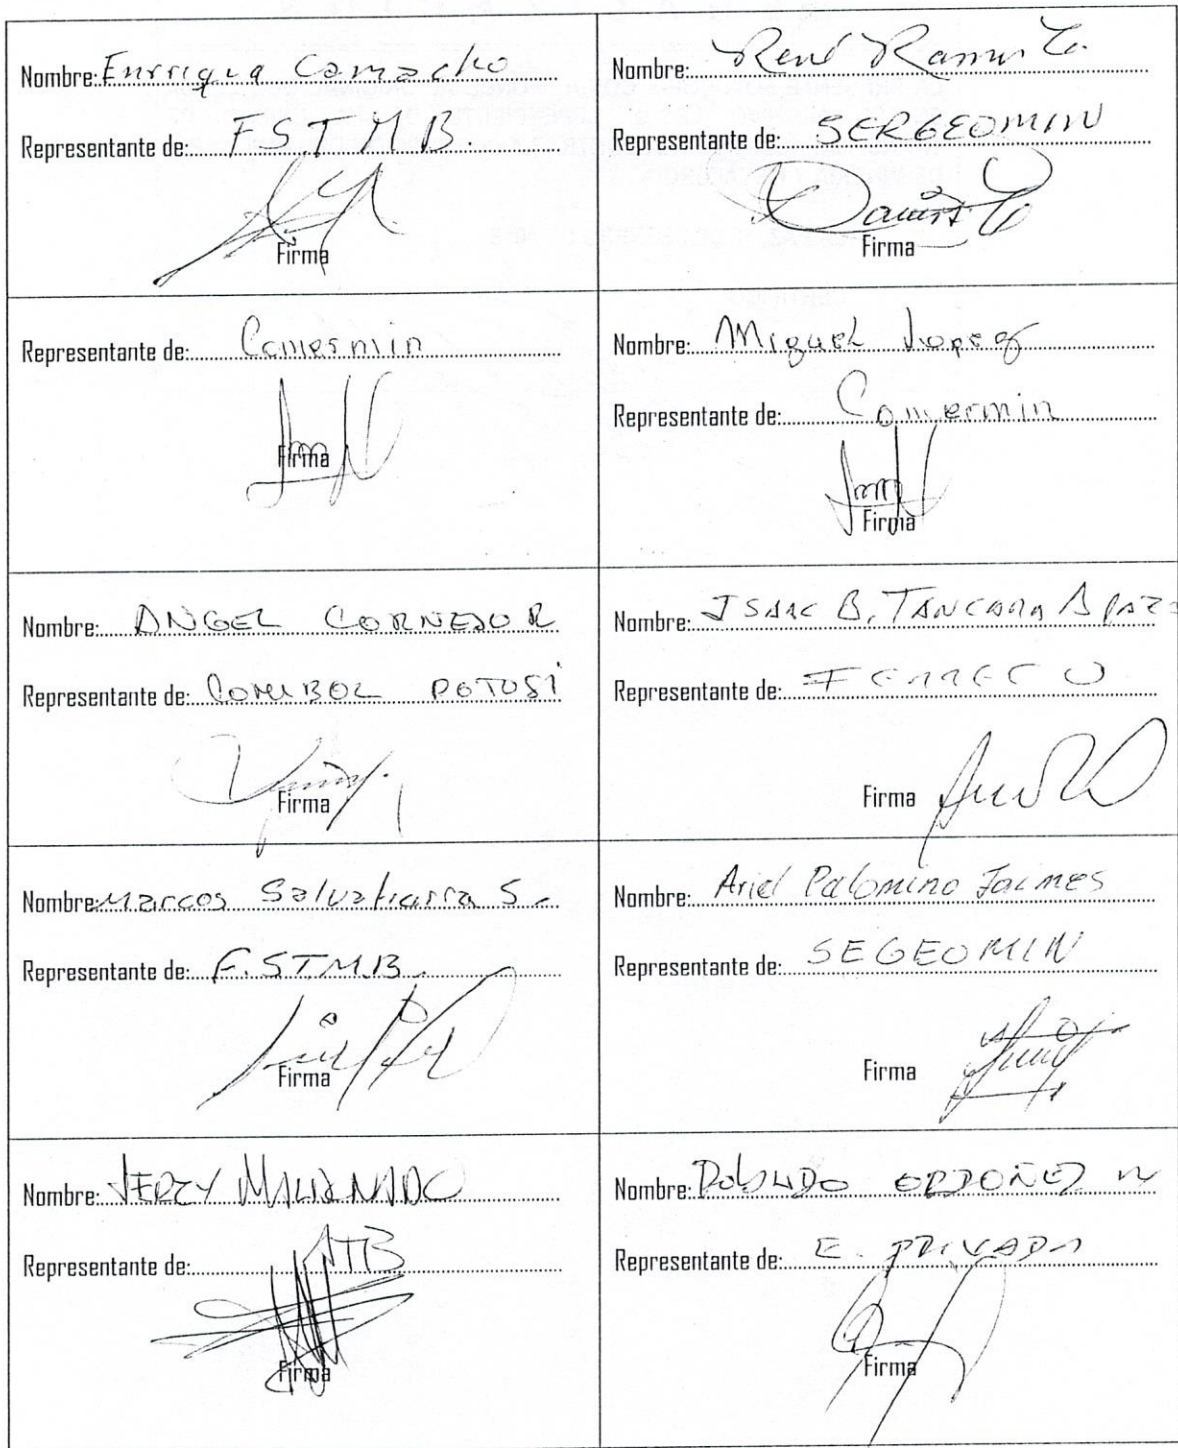 Nombre: Enrrique Camacho
Representante de: F.S.T.M.B.
Firma
Nombre: René Ramos C.
Representante de: SERGEOMIN
Firma
Representante de: Comermin
Firma
Nombre: Miguel Lopez
Representante de: Comermin
Firma
Nombre: ANGEL CORNEJO R
Representante de: COMIBOL POTOSI
Firma
Nombre: ISAAC B. TANCARA APAZA
Representante de:
Firma
Nombre: Marcos Salvatierra S.
Representante de: F.STMB.
Firma
Nombre: Ariel Palomino Jaimes
Representante de: SEGEOMIN
Firma
Nombre: JERZY MALDONADO
Representante de: ATB
Firma
Nombre: ORDOÑEZ
Representante de: E. PRIVADA
Firma